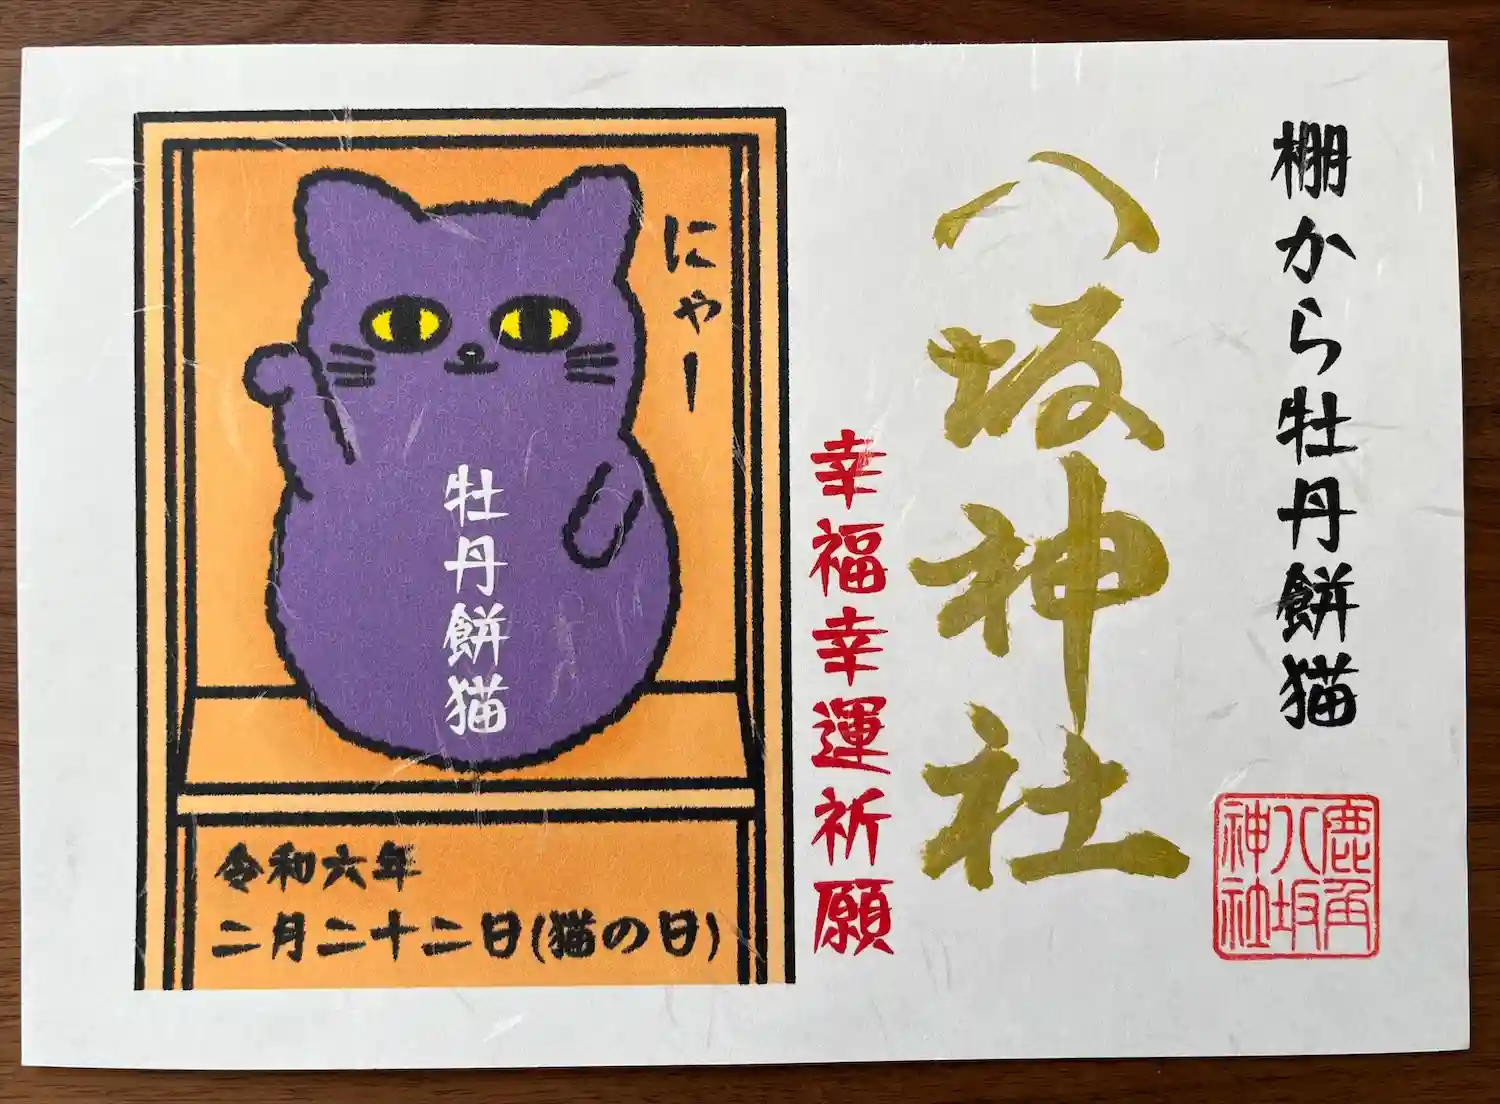 棚から牡丹餅猫
鹿角
八坂
神社
八坂神社
幸福幸運祈願
にゃー
牡丹餅猫
令和六年
二月二十二日(猫の日)